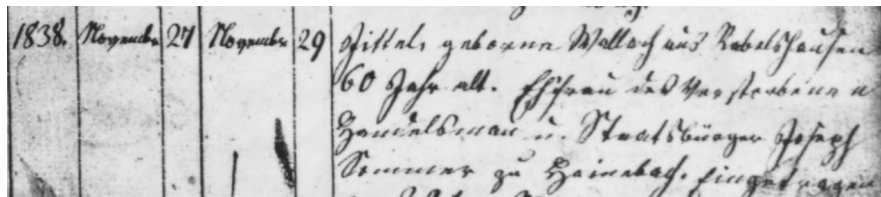 1838. November 27 November 29 Gittel, geborne Wallach aus Rabelshausen
60 Jahr alt. Ehfrau des Verstorbenen
Handelsman u. Staatsbürger Joseph
Sommer zu Heinebach. Eingetragen